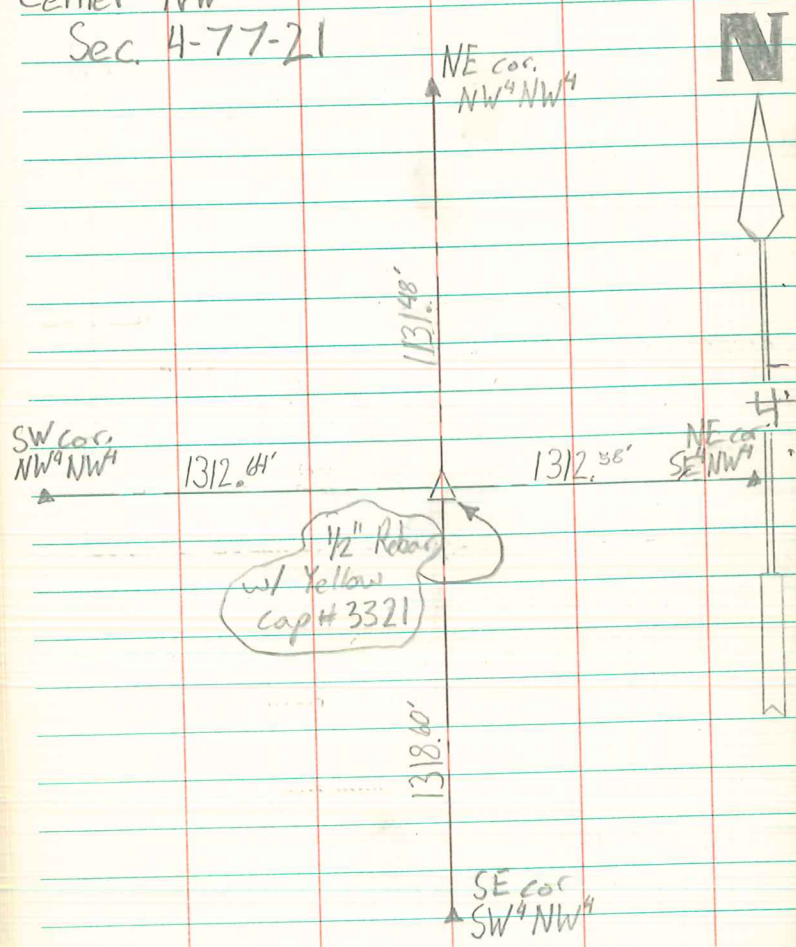 Center NW
Sec. 4-77-21
N
NE cor.
NW⁴ NW⁴
1131.48'
4'
SW cor.
NW⁴ NW⁴
1312.64'
1312.58'
NE cor
SE⁴ NW⁴
1/2" Rebar
w/ Yellow
cap # 3321
1318.60'
SE cor
SW⁴ NW⁴